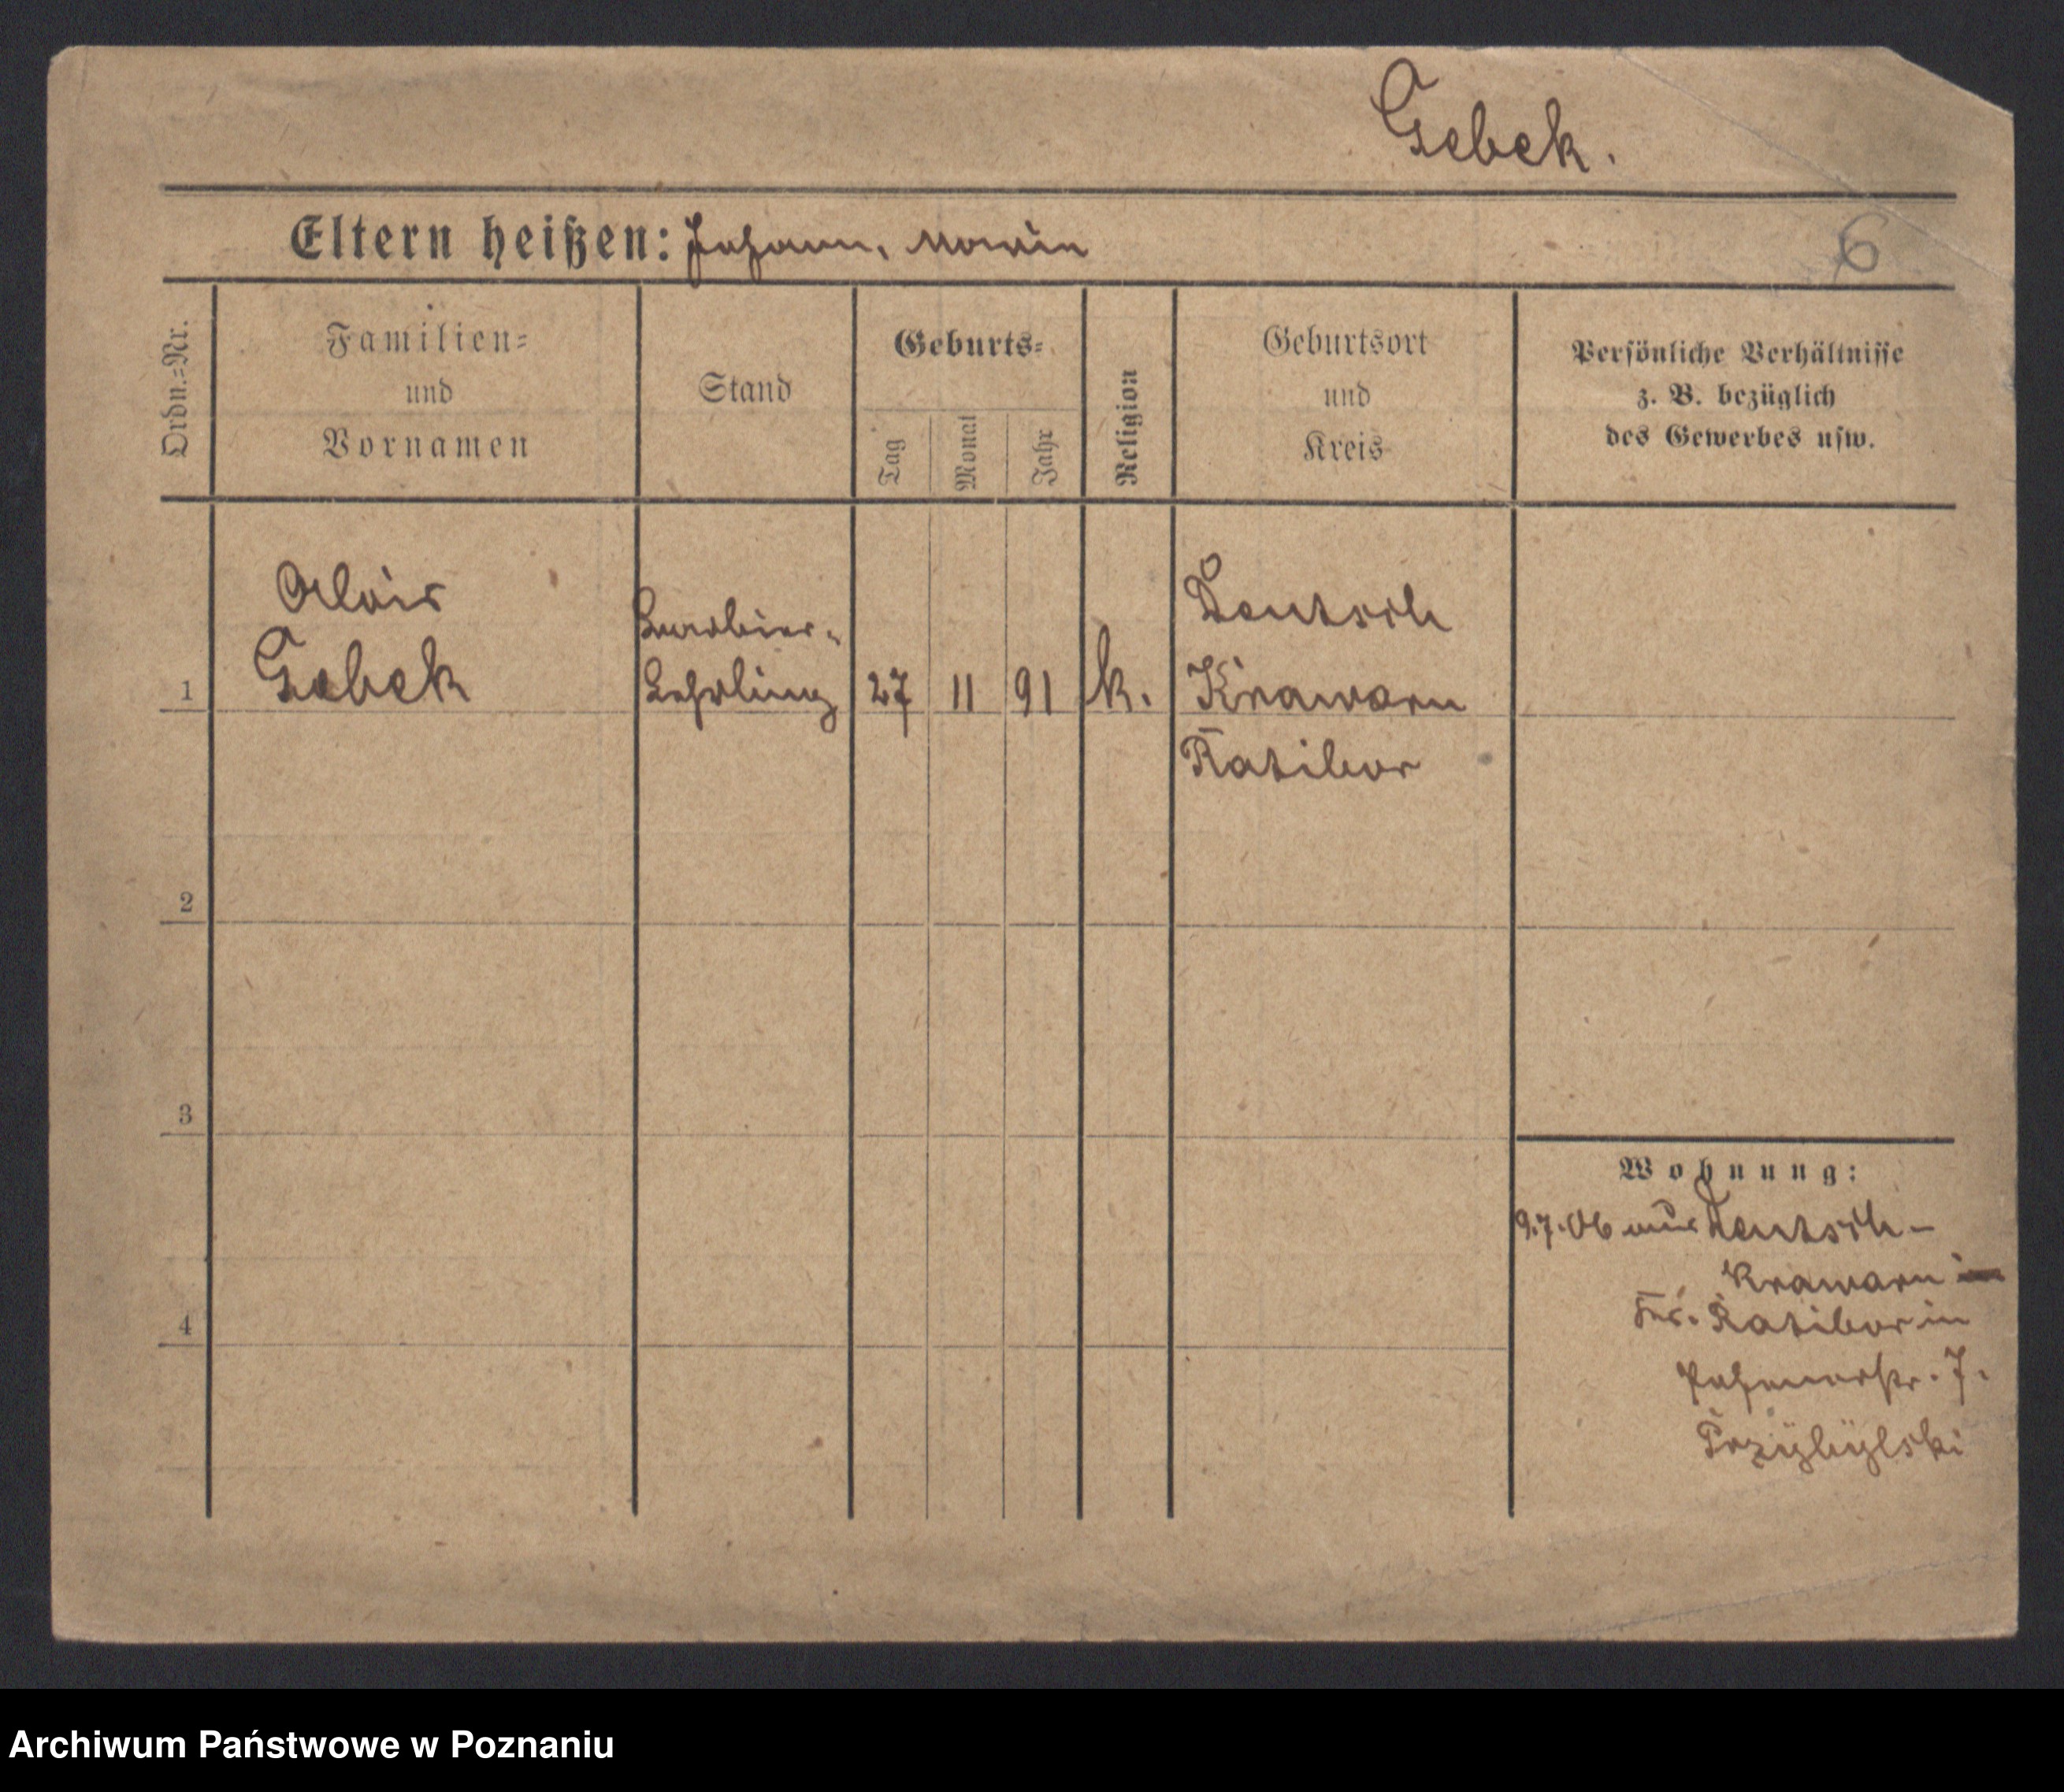 Gebek.
Eltern heißen: Johann, Maria
6
Ordn.=Nr.
Familien=
und
Vornamen
Stand
Geburts=
Tag
Monat
Jahr
Religion
Geburtsort
und
Kreis
Persönliche Verhältnisse
z. B. bezüglich
des Gewerbes usw.
Alois
Gebek
Barbier-
Lehrling
1
27
11
91
k.
Deutsch
Krawarn
Ratibor
2
3
4
Wohnung:
9.7.06 aus Deutsch-
Krawarn
Kr. Ratibor in
Posenerstr. 7.
Przÿbÿlski
Archiwum Państwowe w Poznaniu